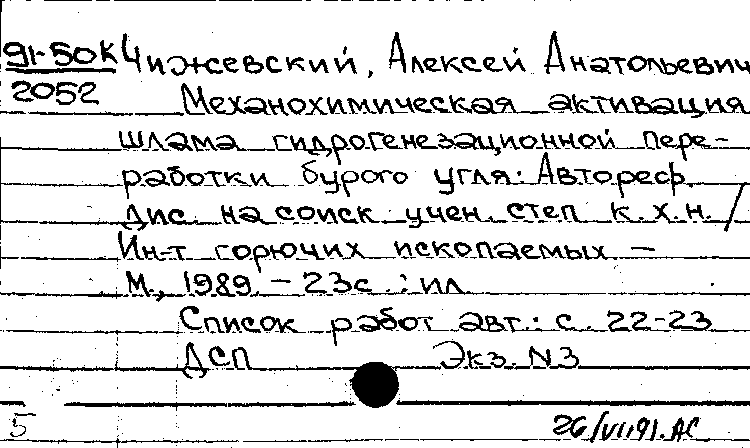 91-50К Чижевский, Алексей Анатольевич
2052 Механохимическая активация
шлама гидрогенезационной пере-
работки бурого угля: Автореф.
дис. на соиск. учен. степ к.х.н. /
Ин-т горючих ископаемых —
М., 1989. — 23с. : ил.
Список работ авт.: с. 22-23
ДСП Экз. N3
5 26/VI.91. АС